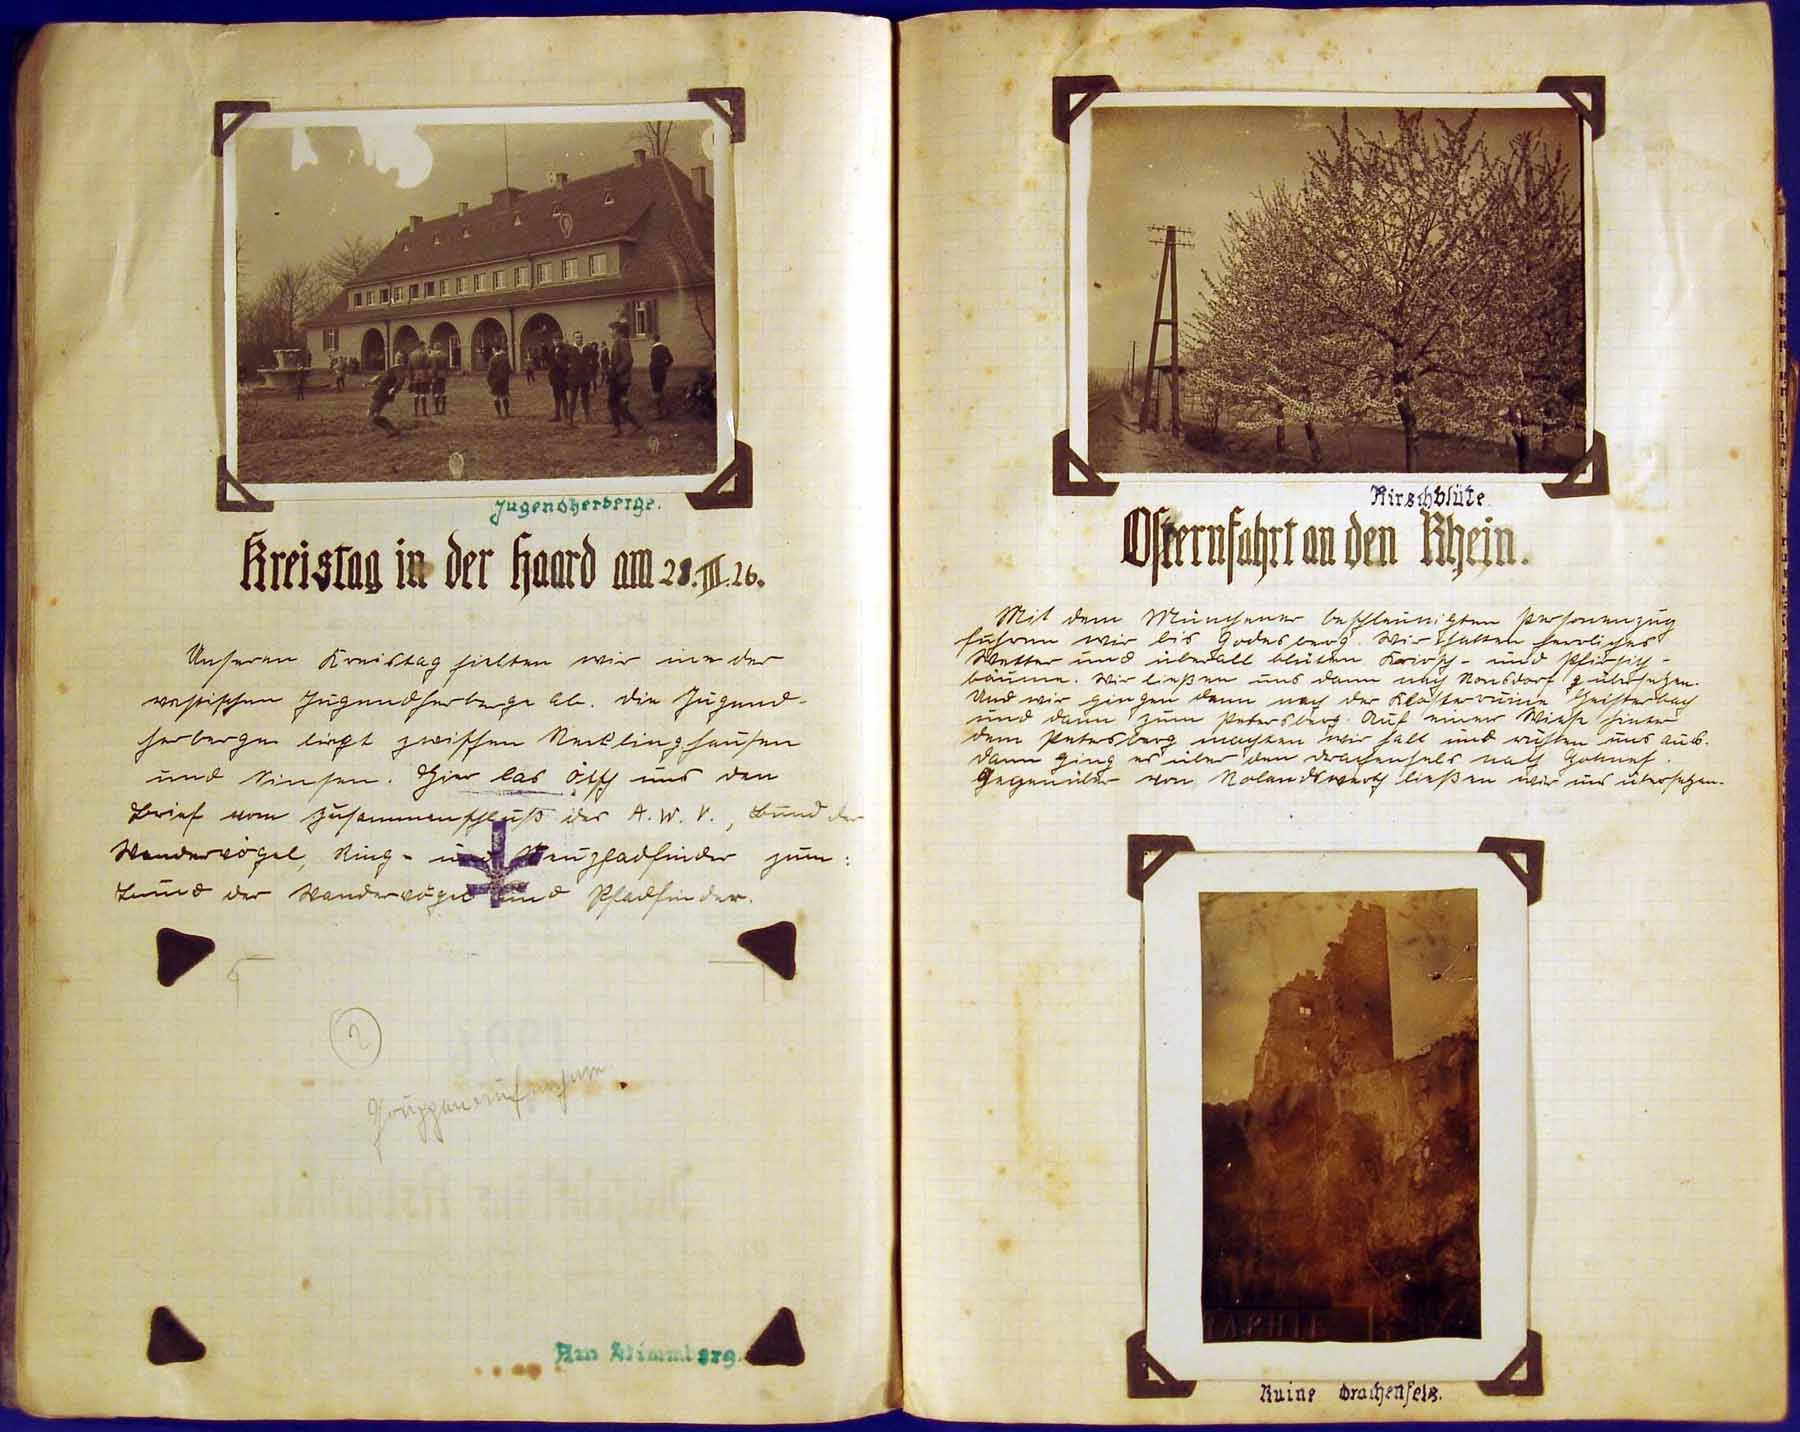 Jugendherberge.
Kreistag in der Haard am 28.III.26.
Unseren Kreistag hielten wir in der
vestischen Jugendherberge ab. Die Jugend-
herberge liegt zwischen Recklinghausen
und Sinsen. Hier las uns den
Brief vom Zusammenschluß des A. W. V., Bund der
Wandervögel, Ring- und Neupfadfinder zum:
Bund der Wandervögel und Pfadfinder.
2
Gruppenaufnahme.
Am Stimmberg.
Kirschblüte.
Osternfahrt an den Rhein.
Mit dem Münchener beschleunigten Personenzug
fuhren wir bis Godesberg. Wir hatten herrliches
Wetter und überall blüten Kirsch- und Pfirsich-
bäume. Wir ließen uns dann nach übersetzen.
Und wir gingen dann nach der Klosterruine Heisterbach
und dann zum Petersberg. Auf einer Wiese hinter
dem Petersberg machten wir halt und ruhten uns aus.
Dann ging es über den Drachenfels nach Honnef.
Gegenüber von Rolandswerth ließen wir uns übersetzen.
Ruine Drachenfels.